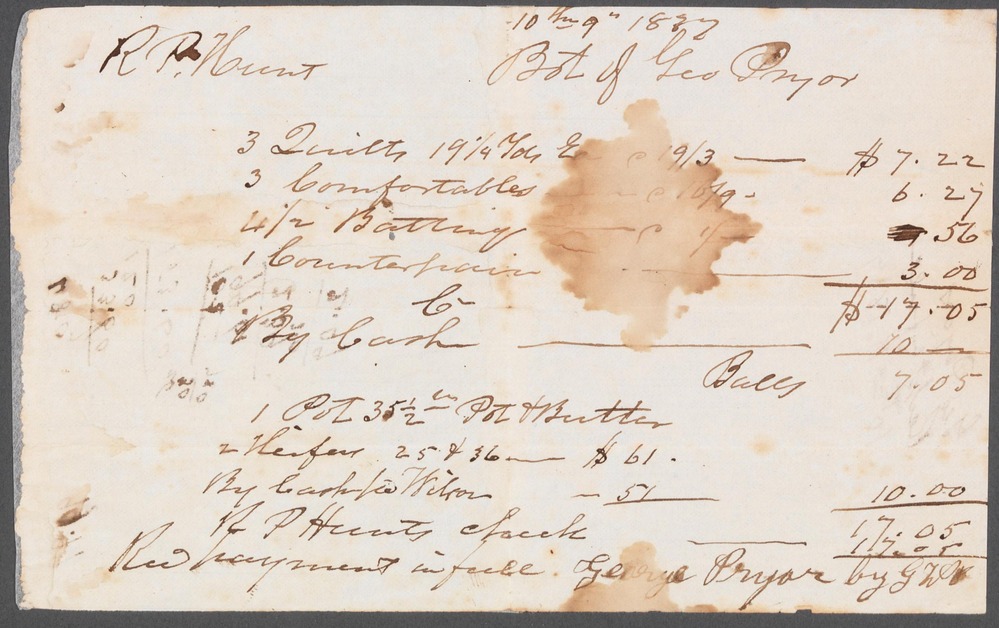 10th 9" 1837
R P. Hunt Bot of Geo Pryor
3 Quilts 19 1/4 Yds c 19/3 — $ 7.22
3 Comfortables — c 16/9 - 6.27
4 1/2 Batting — c 1/ 56
1 Counterpain — 3.00
$ 17.05
Cr
By Cash — 10 —
Balls 7.05
1 Pot 35 1/2 Pot & Butter
2 Heifers 25 & 36 — $ 61.
By Cash Wilson — 51 10.00
17.05
R P Hunts check — 17.05
Recd payment in full. George Pryor by GWP